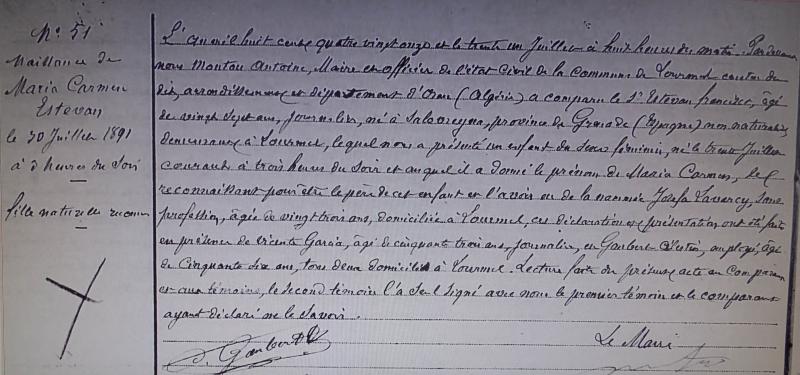 N° 51
Naissance de
Maria Carmen
Estevan
le 30 Juillet 1891
à 3 heures du Soir
fille naturelle reconnue
L'an mil huit cent quatre vingt onze et le trente un Juillet à huit heures du matin. Par devant
nous Montou Antoine, Maire et officier de l'état Civil de la Commune de Lourmel canton du
dit, arrondissement et département d'Oran (Algérie) a comparu le Sr Estevan francisco, âgé
de vingt sept ans, journalier, né à province de Grenade (Espagne) non naturalisé,
demeurant à Lourmel, lequel nous a présenté un enfant du sexe féminin, né le trente Juillet
courant à trois heures du Soir et auquel il a donné le prénom de Maria Carmen, le
reconnaissant pour être le père de cet enfant et l'avoir eu de la nommée Josefa sans
profession, âgée de vingt trois ans, domiciliée à Lourmel, ces déclaration et présentation ont été faites
en présence de Vicente Garcia, âgé de cinquante trois ans, Journalier, et Gaubert employé, âgé
de Cinquante six ans, tous deux domiciliés à Lourmel. Lecture faite du présent acte au Comparant
et aux témoins, le second témoin l'a seul signé avec nous le premier témoin et le comparant
ayant déclaré ne le savoir.
Gaubert
Le Maire